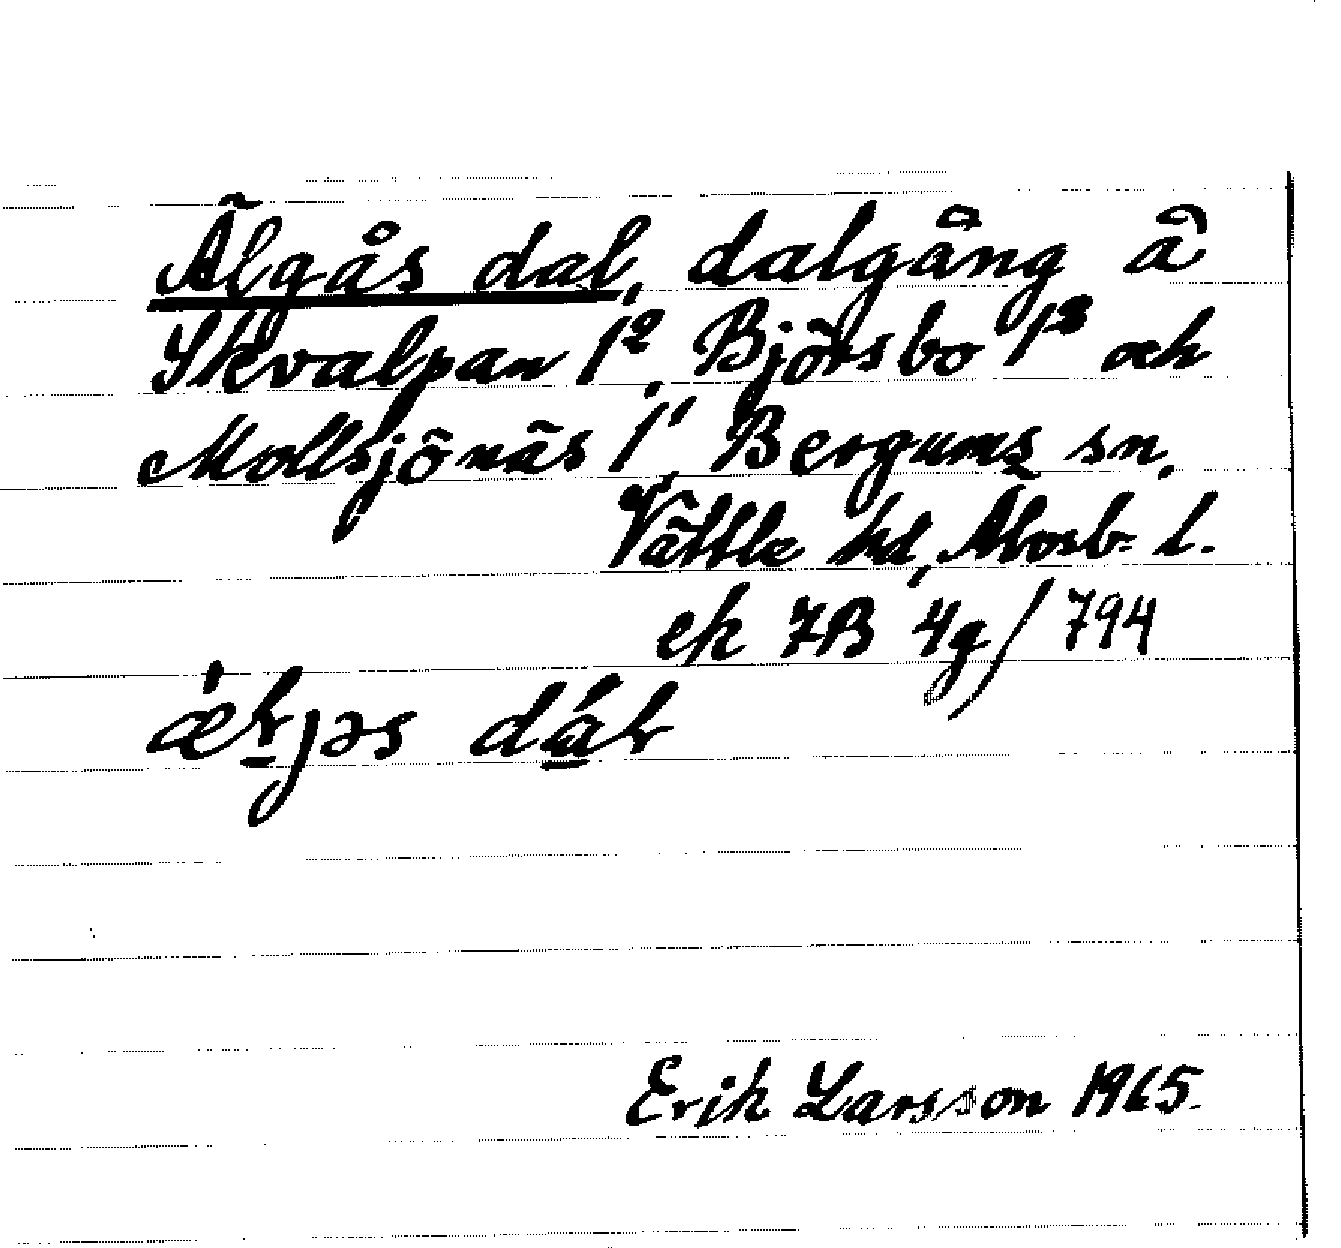 Älgås dal, dalgång å
Skvalpan 1², Björsbo 1³ och
Mollsjönäs 1¹, Bergums sn,
Vättle hd, Älvsb. l.
ek 7B 4g/794
dál
Erik Larsson 1965.